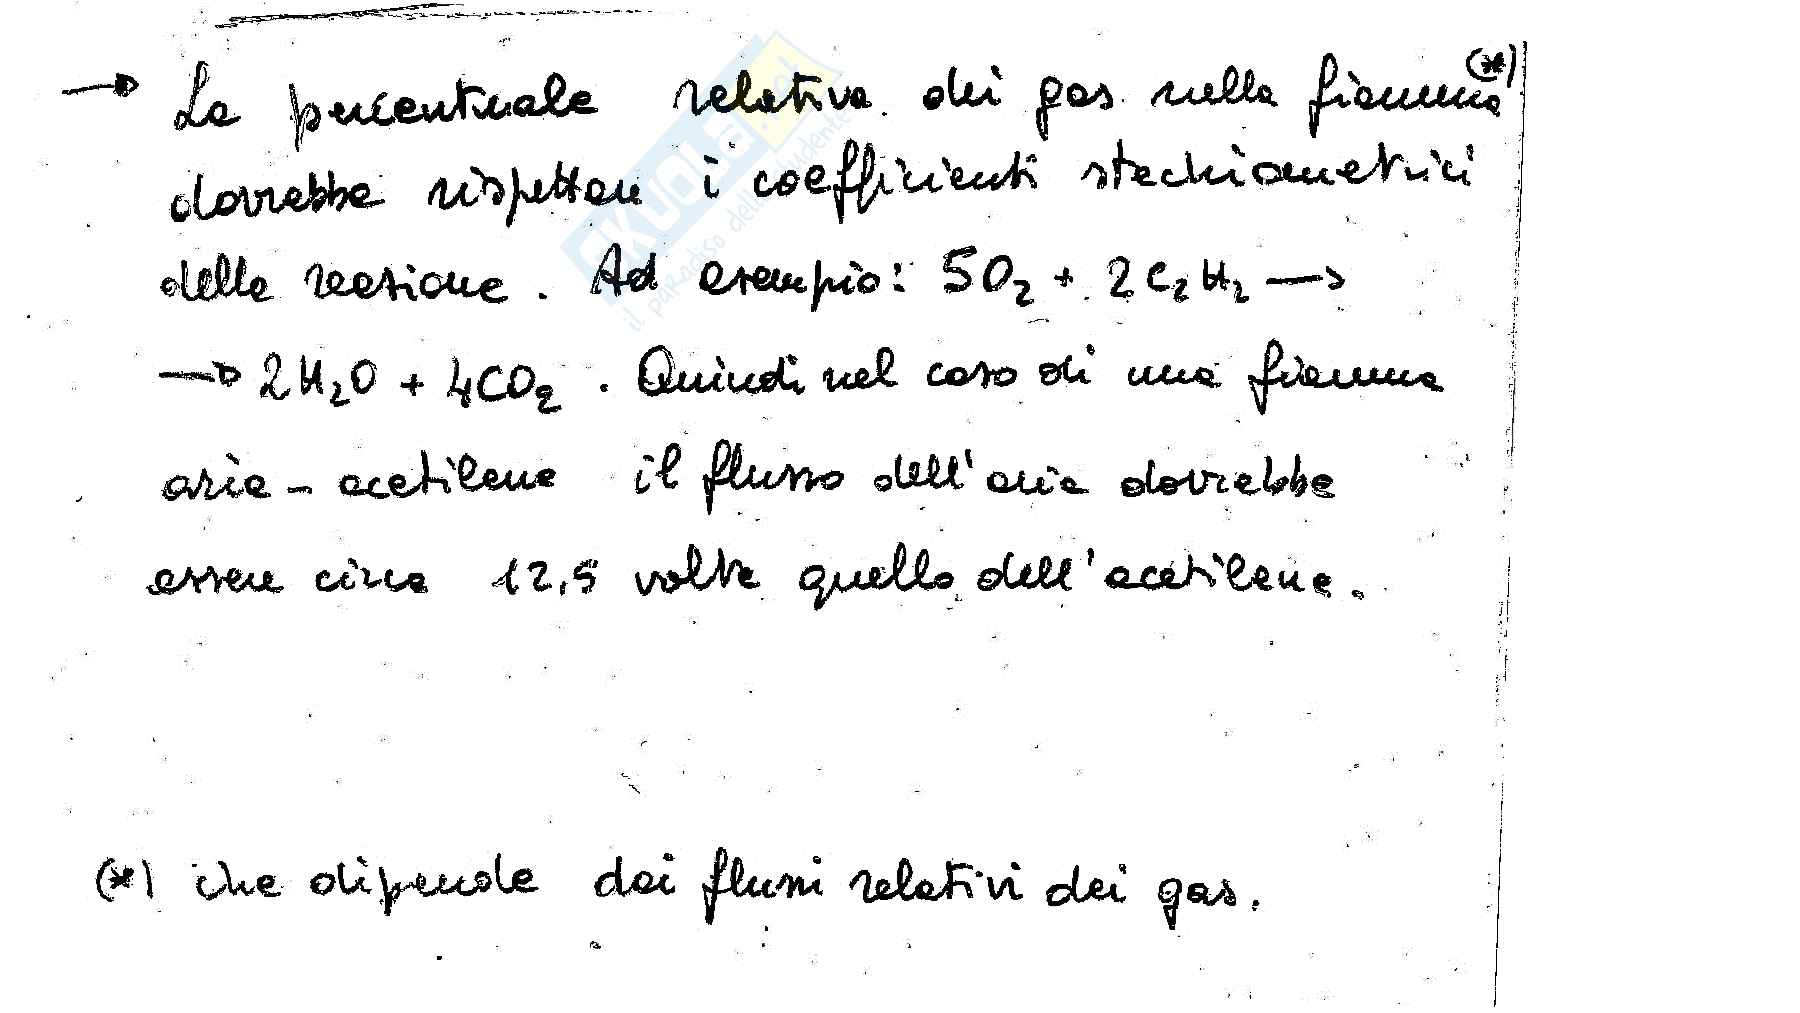 → La percentuale relativa dei gas nella fiamma (*)
dovrebbe rispettare i coefficienti stechiometrici
della reazione. Ad esempio: 5O₂ + 2C₂H₂ →
→ 2H₂O + 4CO₂. Quindi nel caso di una fiamma
aria-acetilene il flusso dell'aria dovrebbe
essere circa 12,5 volte quello dell'acetilene.
(*) che dipende dai flussi relativi dei gas.
SKUOLA.net
il paradiso dello studente